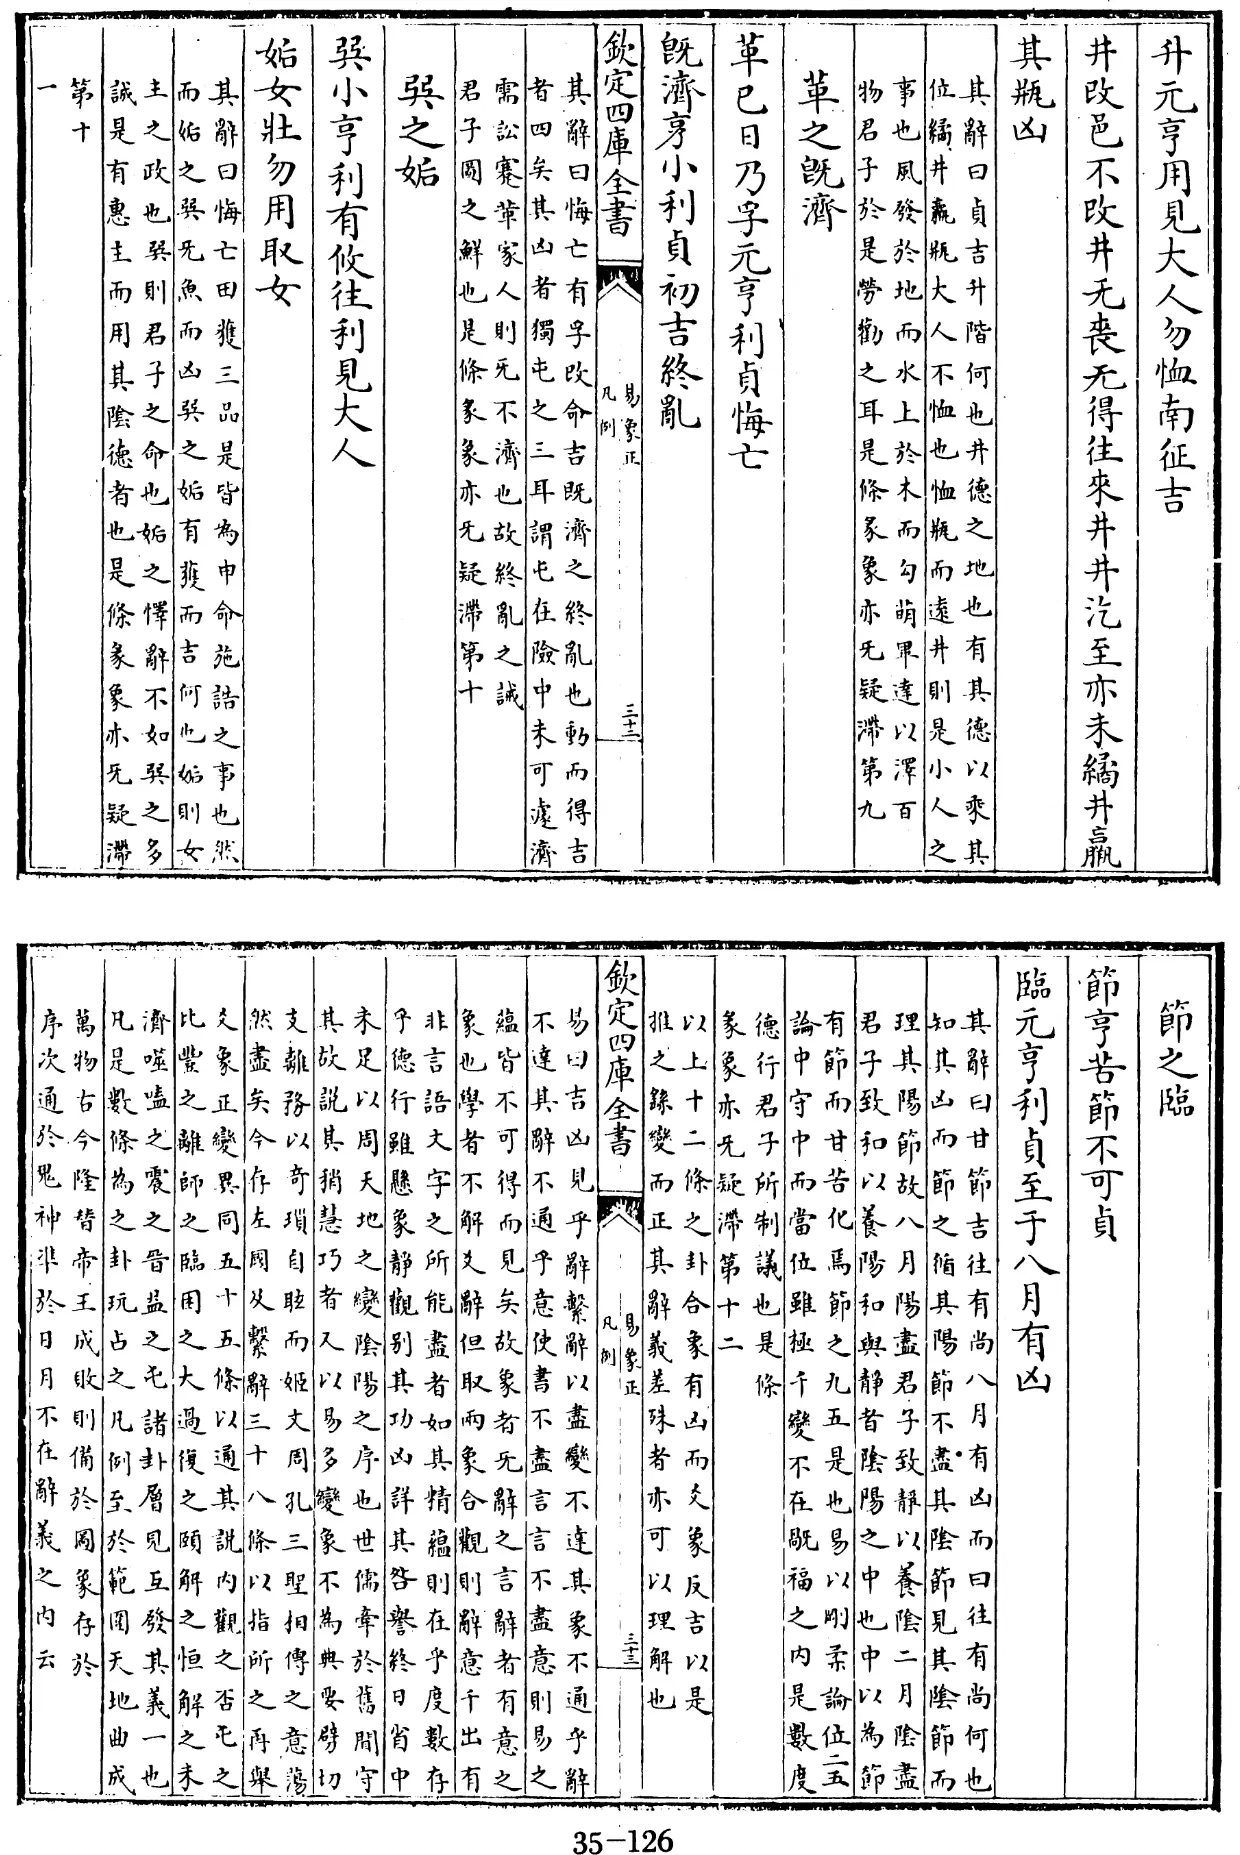 升元亨用見大人勿恤南征吉
井改邑不改井无喪无得往來井井汔至亦未繘井羸
其瓶凶
其辭曰貞吉升階何也井德之地也有其德以乘其
位繘井羸瓶大人不恤也恤瓶而遠井則是小人之
事也風發於地而水上於木而勾萌畢達以澤百
物君子於是勞勸之耳是條彖象亦旡疑滯第九
革之旣濟
革巳日乃孚元亨利貞悔亡
旣濟亨小利貞初吉終亂
欽定四庫全書
易象正
凡例
三十二
其辭曰悔亡有孚改命吉既濟之終亂也動而得吉
者四矣其凶者獨屯之三耳謂屯在險中未可遽濟
需訟蹇革家人則旡不濟也故終亂之誡
君子圖之鮮也是條彖象亦旡疑滯第十
巽之姤
巽小亨利有攸往利見大人
姤女壯勿用取女
其辭曰悔亡田獲三品是皆為申命施誥之事也然
而姤之巽旡魚而凶巽之姤有獲而吉何也姤則女
主之政也巽則君子之命也姤之懌辭不如巽之多
誠是有惠主而用其陰德者也是條彖象亦旡疑滯
第十
一
節之臨
節亨苦節不可貞
臨元亨利貞至于八月有凶
其辭曰甘節吉往有尚八月有凶而曰往有尚何也
知其凶而節之循其陽節不盡其陰節見其陰節而
理其陽節故八月陽盡君子致靜以養陰二月陰盡
君子致和以養陽和與靜者陰陽之中也中以為節
有節而甘苦化焉節之九五是也易以剛柔論位二五
論中守中而當位雖極千變不在戤福之內是數度
德行君子所制議也是條
彖象亦旡疑滯第十二
以上十二條之卦合象有凶而爻象反吉以是
推之錄變而正其辭義差殊者亦可以理解也
欽定四庫全書
易象正
凡例
三十三
易曰吉凶見乎辭繫辭以盡變不達其象不通乎辭
不達其辭不通乎意使書不盡言言不盡意則易之
蘊皆不可得而見矣故象者旡辭之言辭者有意之
象也學者不解爻辭但取兩象合觀則辭意千出有
非言語文字之所能盡者如其精蘊則在乎度數存
乎德行雖懸象靜觀别其功凶詳其咎譽終日省中
未足以周天地之變陰陽之序也世儒牽於舊聞守
其故說其稍慧巧者又以易多變象不為典要劈切
支離務以奇瑣自眩而姬文周孔三聖相傳之意蕩
然盡矣今存左國及繫辭三十八條以指所之再舉
爻象正變異同五十五條以通其說內觀之否屯之
比豐之離師之臨困之大過復之頤解之恒解之未
濟噬嗑之震之晉益之屯諸卦層見互發其義一也
凡是數條為之卦玩占之凡例至於範圍天地曲成
萬物古今隆替帝王成敗則備於圖象存於
序次通於鬼神非於日月不在辭義之內云
35-126